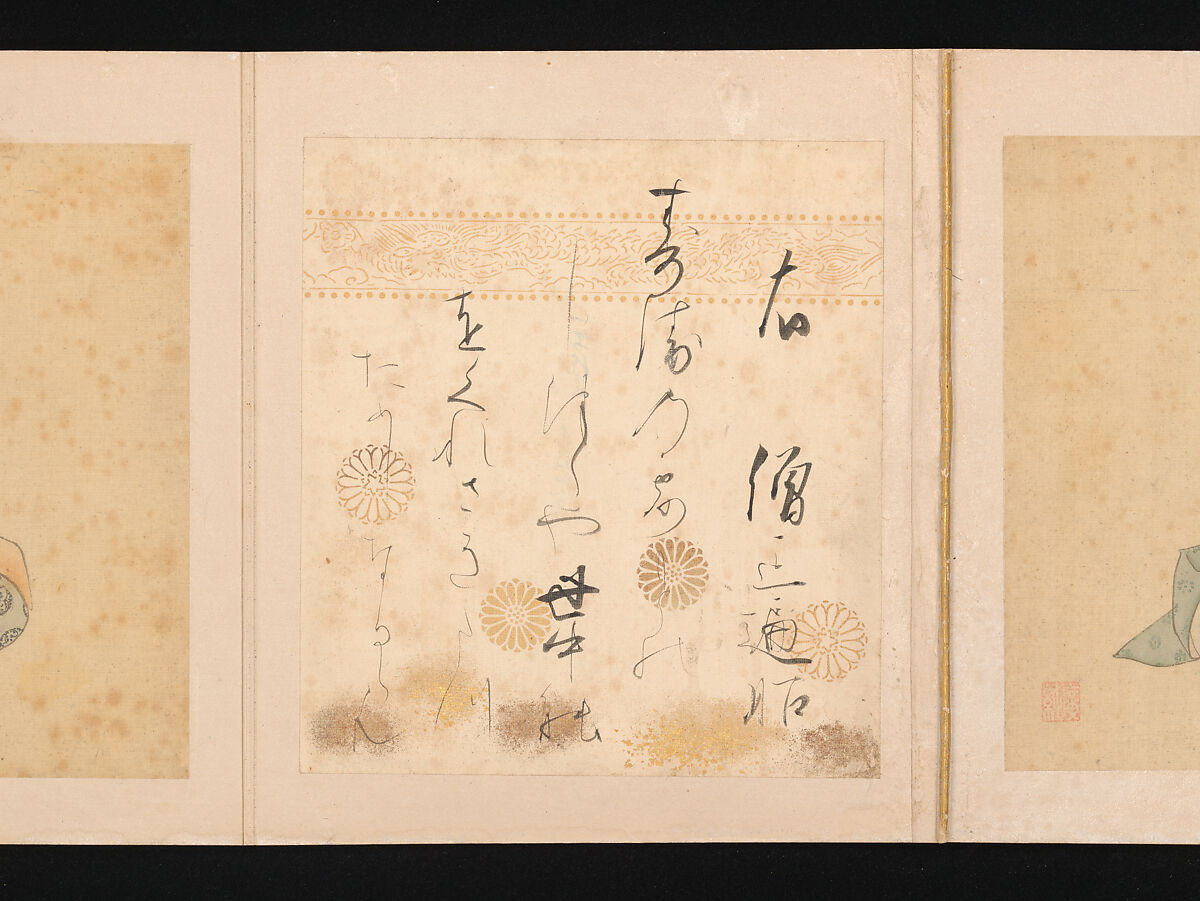 右 僧正遍昭
寿衛乃露もとの
しつくや世中能
をくれさきたつ
ためしなるらん